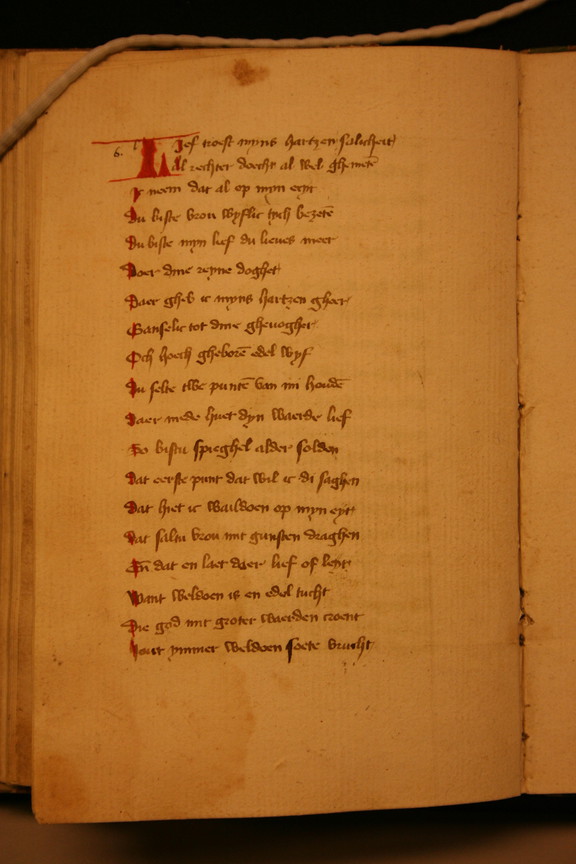 6.
Lief troest myns hartzen salicheit
Al rechter doecht al wel ghemetē
Ic neem dat al op myn eyt
Du biste vrou wyflic tych bezetē
Du biste myn lief du lieues meer
Doer dine reyne doghet
Daer gheb ic myns hartzen gheer
Ganselic tot dine ghenoghet
Och hoech gheborē edel wyf
Du selte twe puntē van mi houdē
Daer mede huet dyn waerde lief
So bistu spieghel alder solden
Dat eerste punt dat wil ic di saghen
Dat hiet ic waildoen op myn eyt
Dat saltu vrou mit gunsten draghen
En̄ dat en laet doer lief of leyt
Want weldoen is en edel tucht
Die god mit groter waerden croent
Hout ymmer weldoen soete vrucht